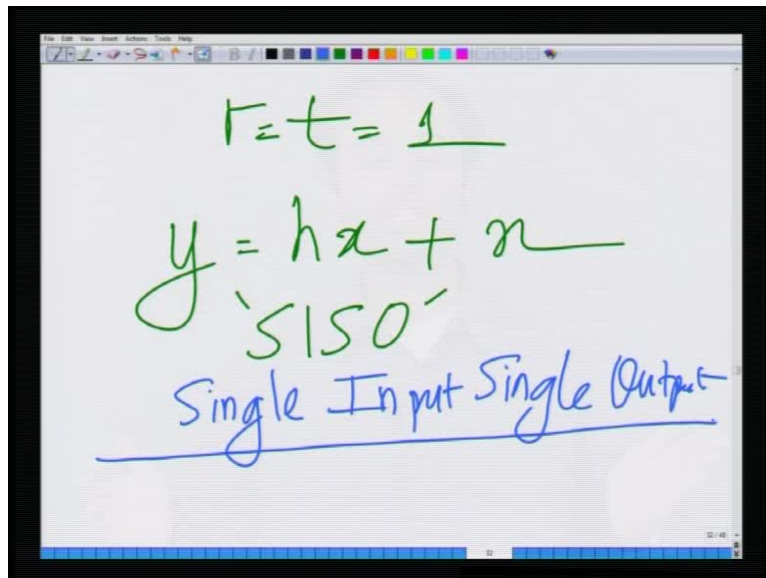 File Edit View Insert Actions Tools Help
r = t = 1
y = hx + n
'SISO'
Single Input Single Output
32 / 48
32